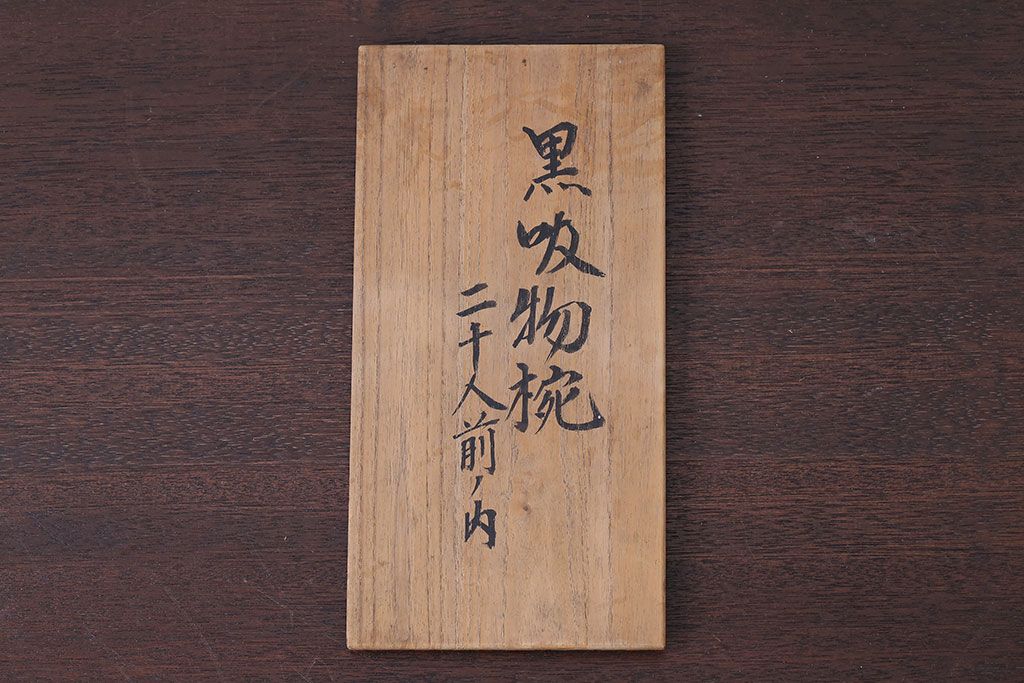 黒吸物椀
二十人前ノ内